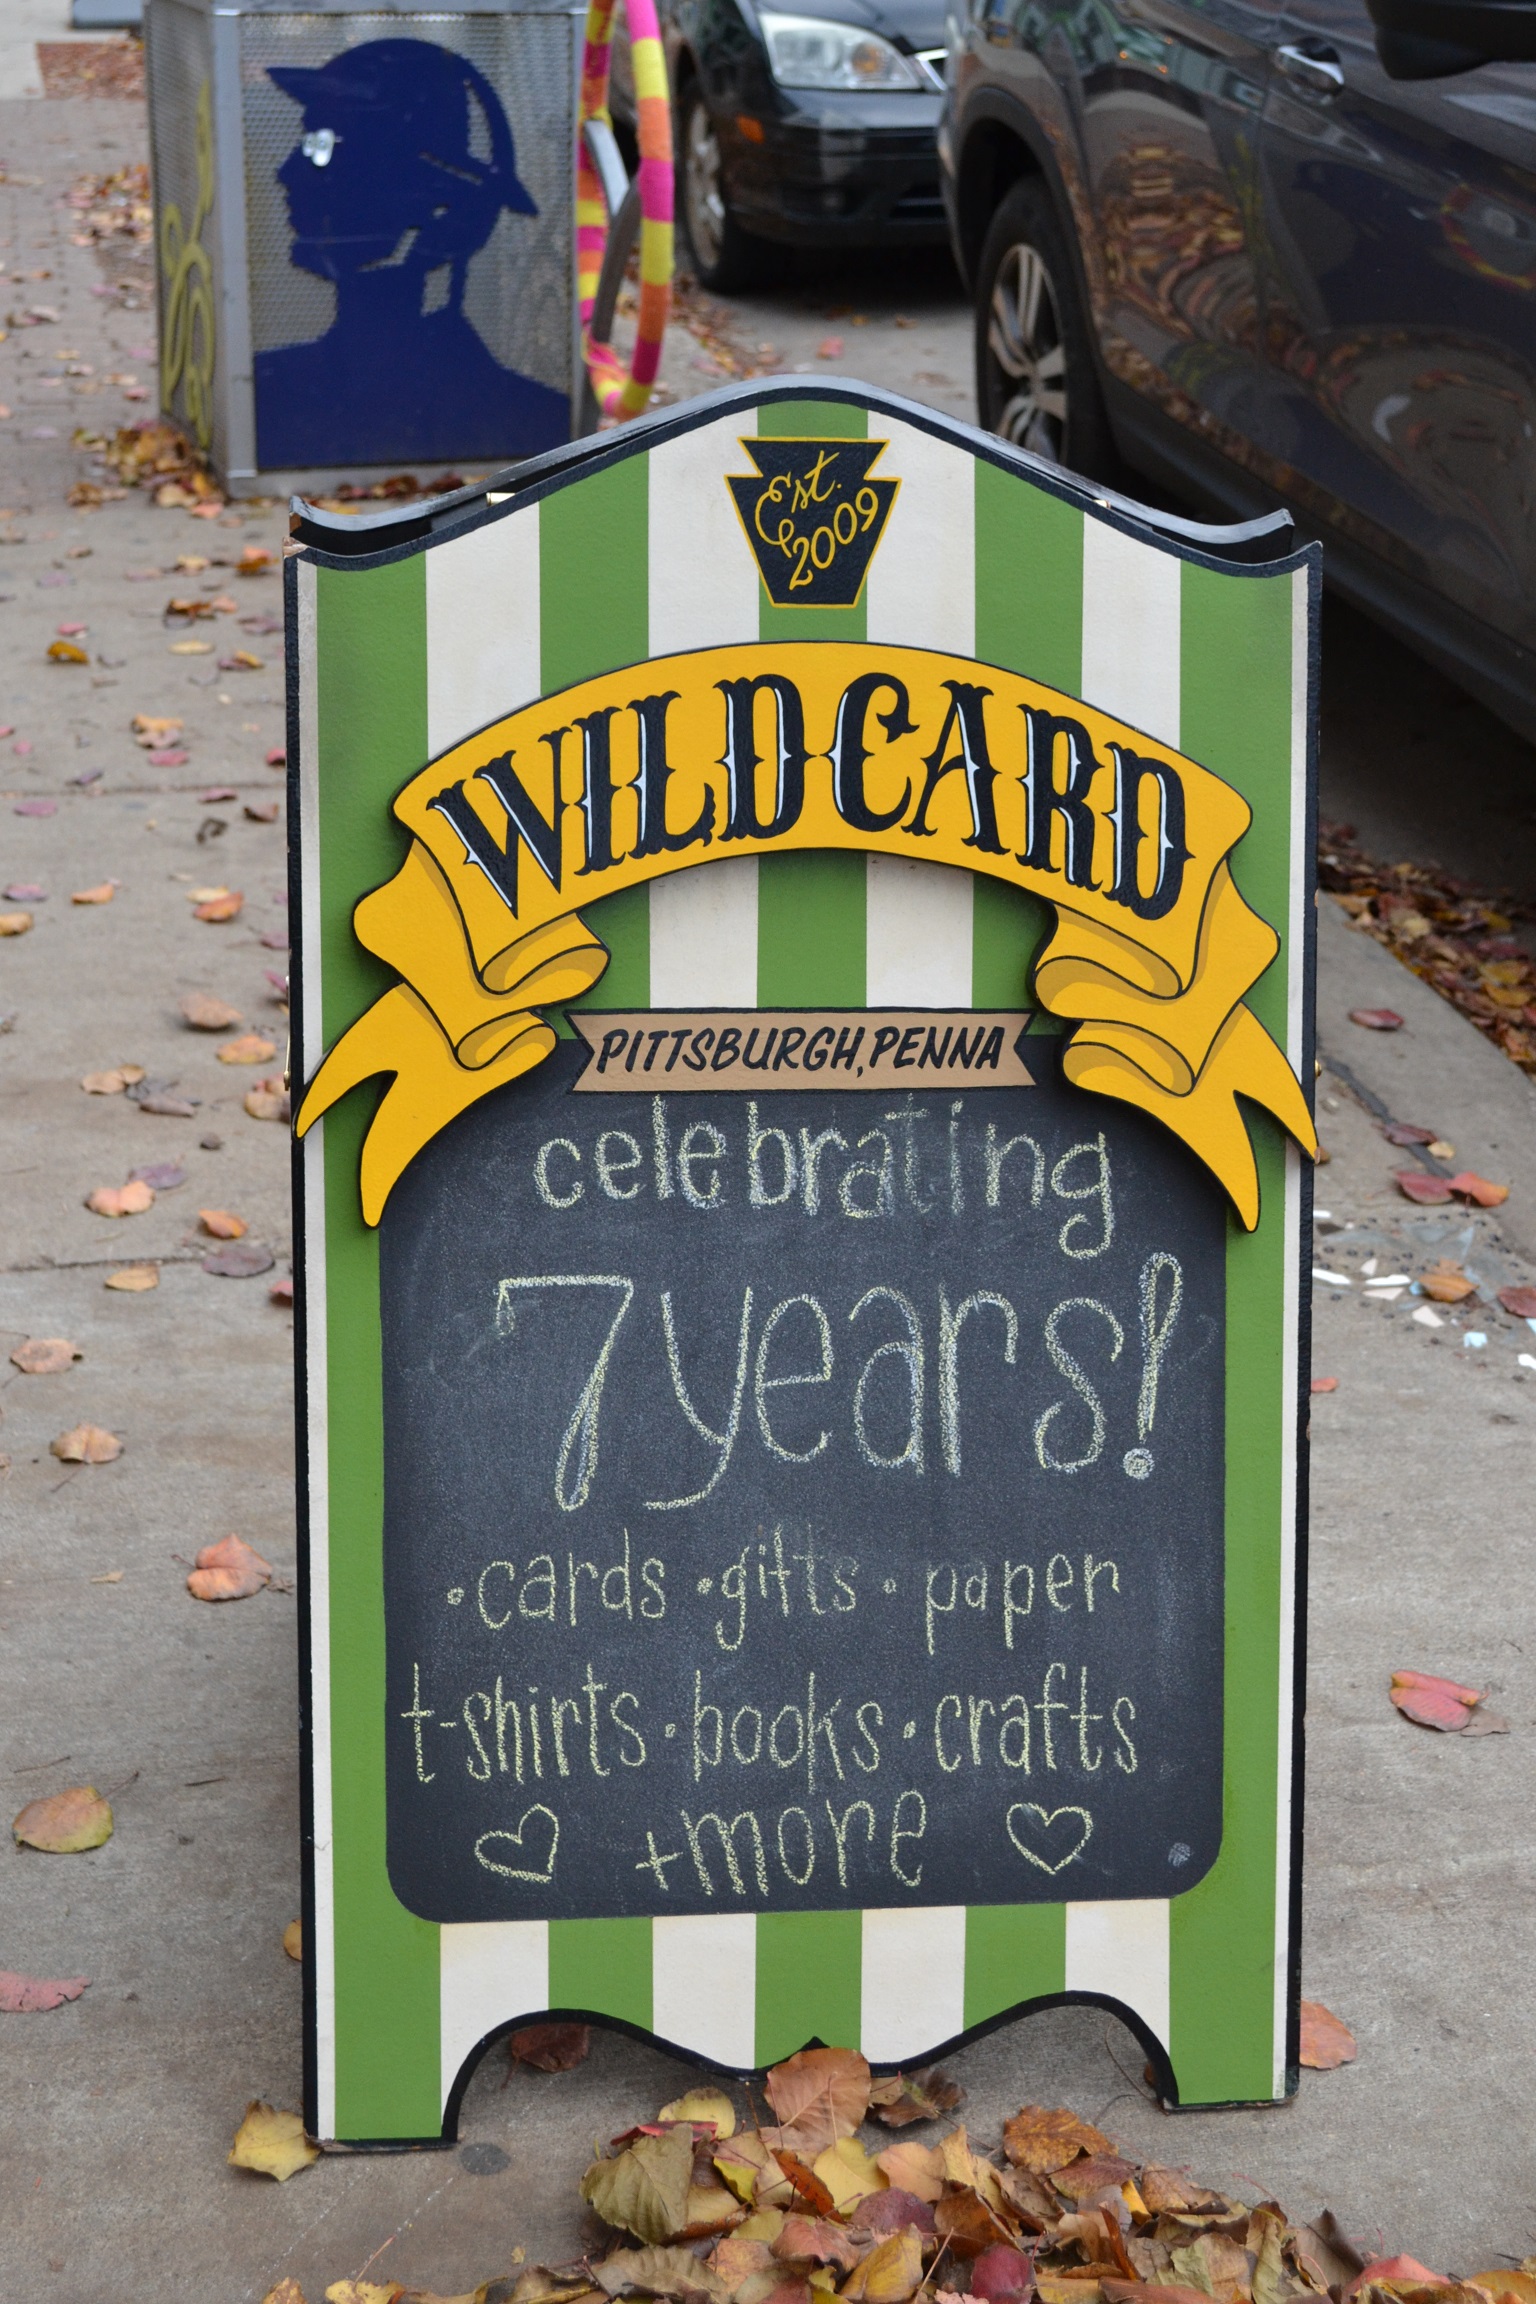 Est.
2009
WILDCARD
PITTSBURGH, PENNA
celebrating
7 years!
• cards • gifts • paper
t-shirts • books • crafts
+more